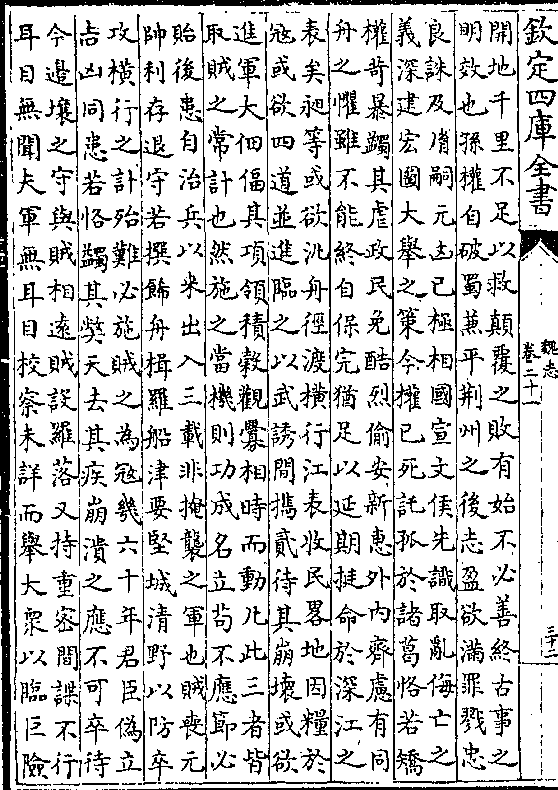 欽定四庫全書
魏志
卷二十一
三十二
開地千里不足以救顛覆之敗有始不必善終古事之
明效也孫權自破蜀兼平荆州之後志盈欲滿罪戮忠
良誅及胄嗣元凶已極相國宣文侯先識取亂侮亡之
義深建宏圖大舉之策今權已死託孤於諸葛恪若矯
權苛暴蠲其虐政民免酷烈偷安新惠外内齊慮有同
舟之懼雖不能終自保完猶足以延期挺命於深江之
表矣昶等或欲汎舟徑渡横行江表收民畧地因糧於
寇或欲四道並進臨之以武誘間攜貳待其崩壞或欲
進軍大佃偪其項領積穀觀釁相時而動凡此三者皆
取賊之常計也然施之當機則功成名立苟不應節必
貽後患自治兵以來出入三載非掩襲之軍也賊喪元
帥利存退守若撰飾舟楫羅船津要堅城清野以防卒
攻横行之計殆難必施賊之為寇幾六十年君臣偽立
吉凶同患若恪蠲其弊天去其疾崩潰之應不可卒待
今邉壤之守與賊相遠賊設羅落又持重密間諜不行
耳目無聞夫軍無耳目校察未詳而舉大衆以臨巨險